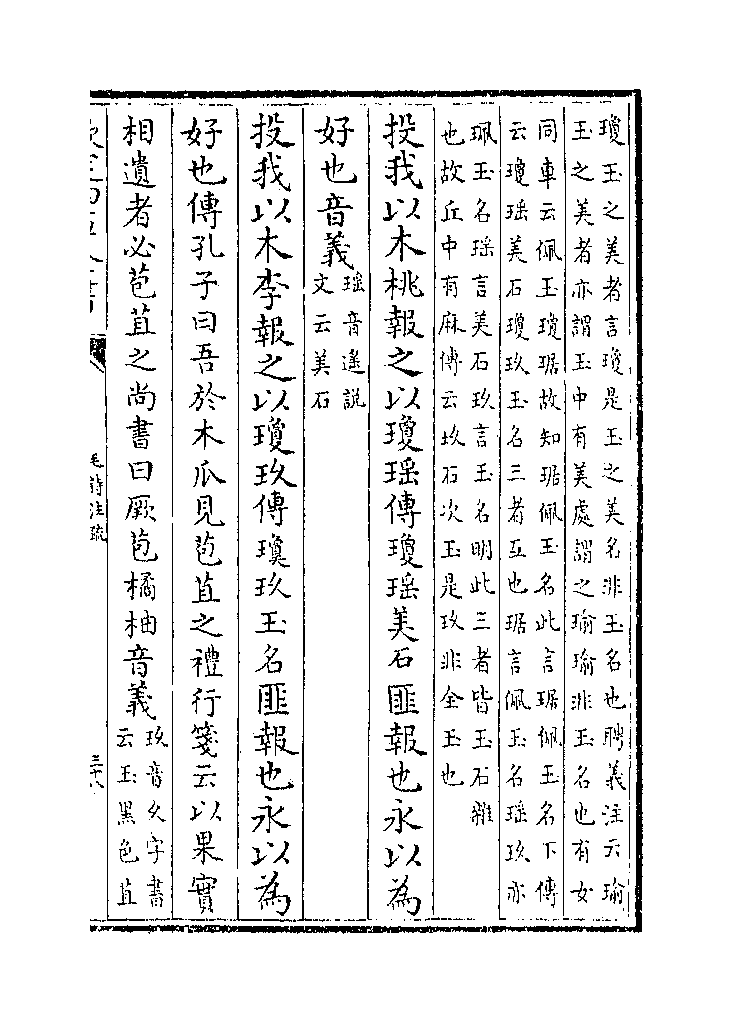 瓊玉之美者言瓊是玉之美名非玉名也聘義注云瑜
玉之美者亦謂玉中有美處謂之瑜瑜非玉名也有女
同車云佩玉瓊琚故知琚佩玉名此言琚佩玉名下傳
云瓊瑶美石瓊玖玉名三者互也琚言佩玉名瑶玖亦
珮玉名瑶言美石玖言玉名明此三者皆玉石雜
也故丘中有麻傳云玖石次玉是玖非全玉也
投我以木桃報之以瓊瑶傳瓊瑶美石匪報也永以為
好也音義
瑶音遥說
文云美石
投我以木李報之以瓊玖傳瓊玖玉名匪報也永以為
好也傳孔子曰吾於木瓜見苞苴之禮行箋云以果實
相遺者必苞苴之尚書曰厥苞橘柚音義
玖音久字書
云玉黑色苴
毛詩注疏
三十八